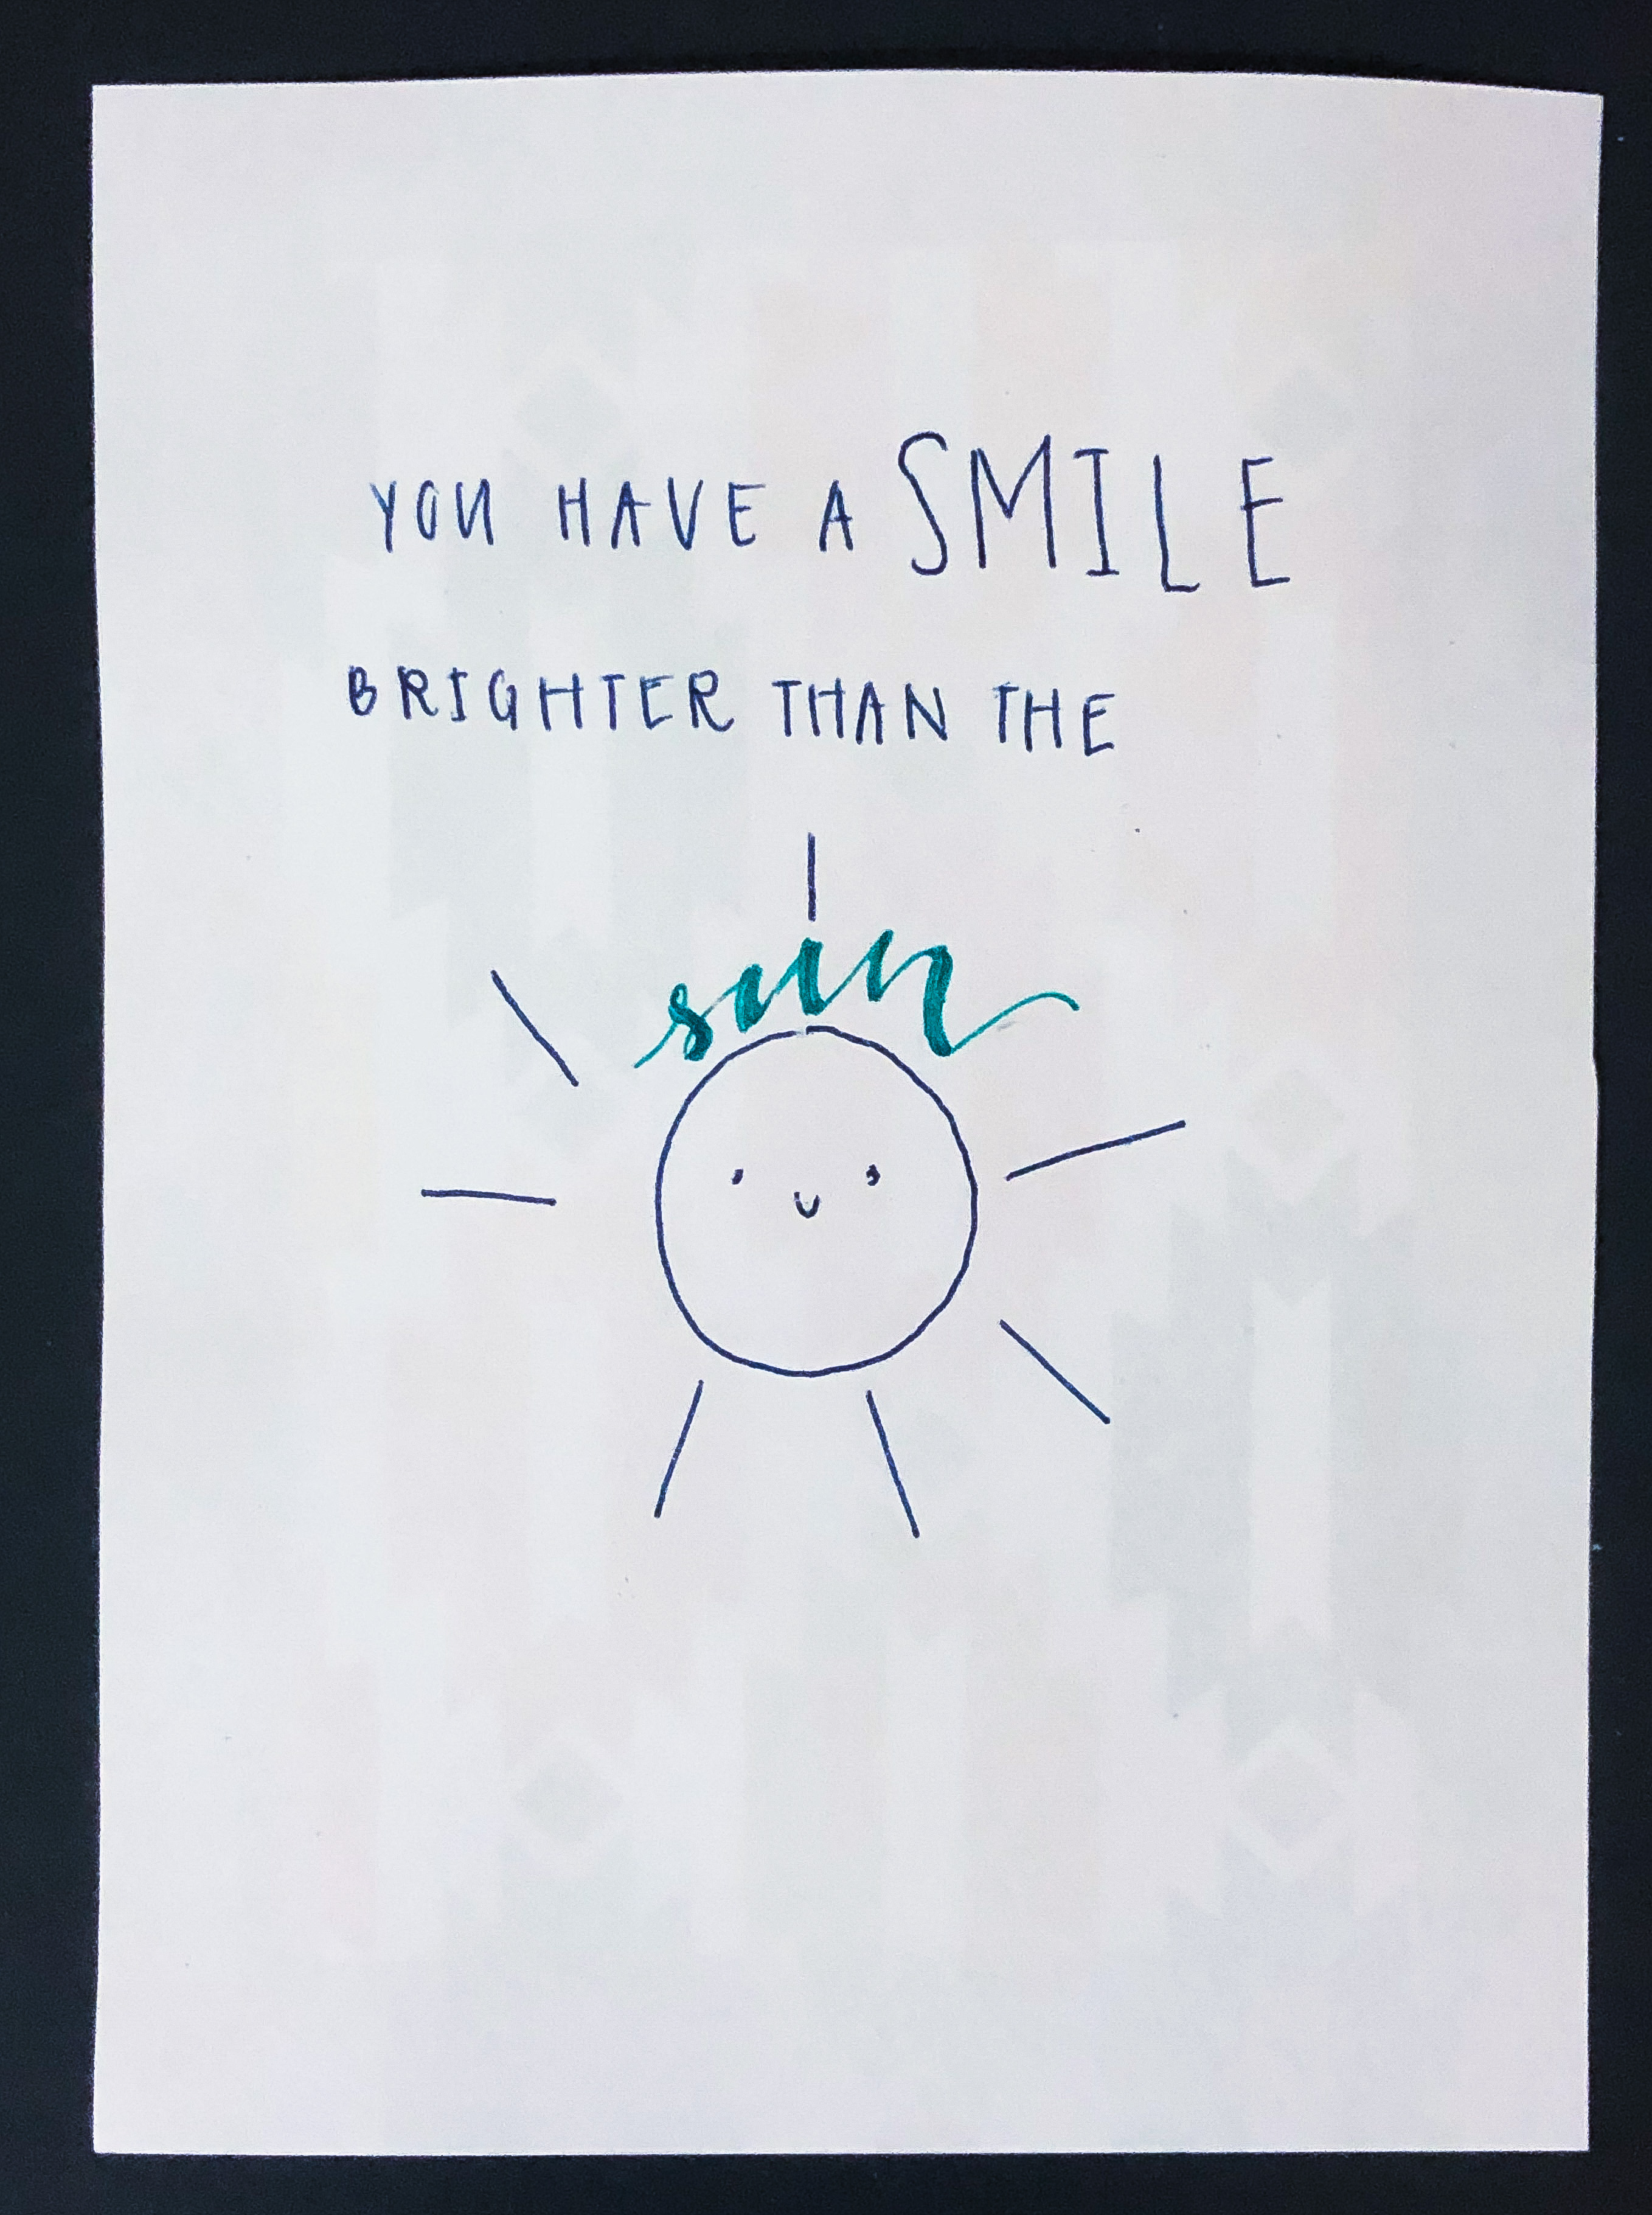 YOU HAVE A SMILE
BRIGHTER THAN THE
sun